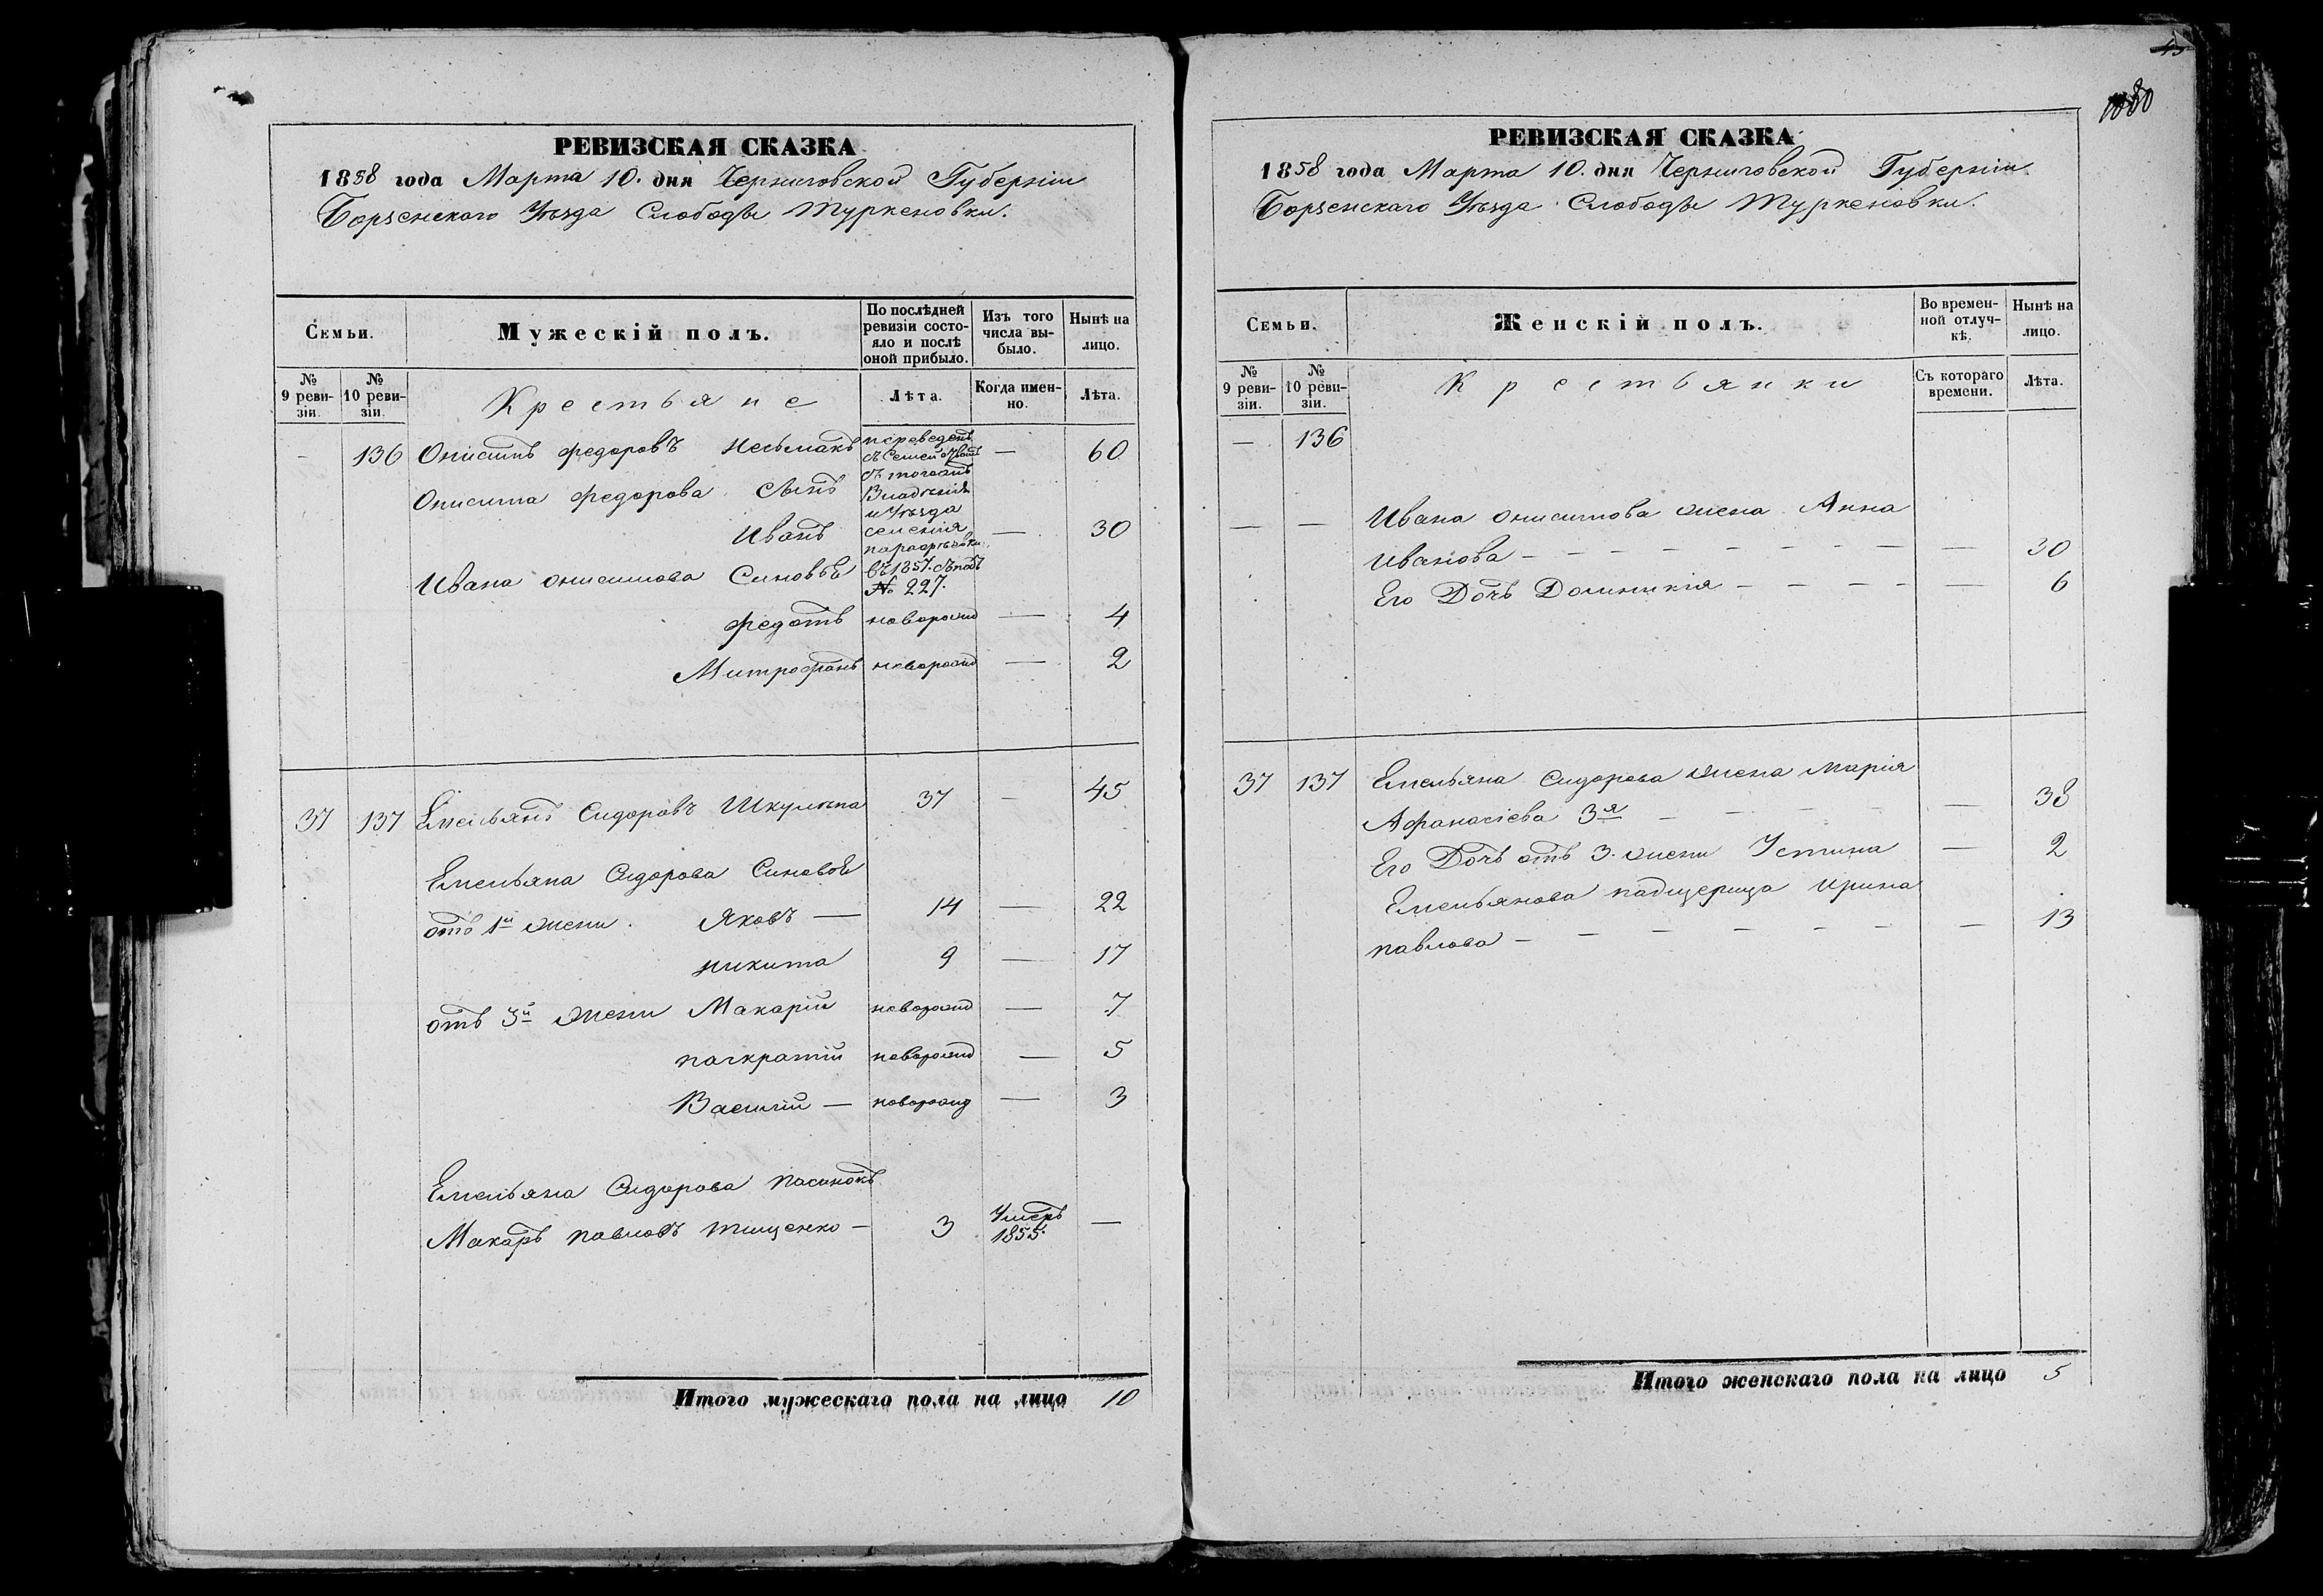 РЕВИЗСКАЯ СКАЗКА
1858 года Марта 10. дня Черниговской Губерніи
Борзенскаго Уѣзда Слободы Туркеновки.
Семьи.
Мужескій полъ.
По послѣдней
ревизіи состо-
яло и послѣ
оной прибыло.
Изъ того
числа вы-
было.
Нынѣ на
лицо.
№
9 реви-
зіи.
№
10 реви-
зіи.
Крестьяне
Лѣта.
Когда имен-
но.
Лѣта.
136 Онисимъ Федоровъ переведенъ — 60
Онисима Федорова Сынъ
Уѣзда
Иванъ селенія — 30
Ивана Онисимова Синовья въ 1857.
№ 227.
Федотъ новорожд — 4
Митрофанъ новорожд — 2
37 137 Емельянъ Сидоровъ Шкулыпа 37 — 45
Емельяна Сидорова Синовья
отъ 1й жени. Яковъ — 14 — 22
Никита 9 — 17
отъ 3й жени Макарій новорожд — 7
Панкратій новорожд — 5
Василій — новорожд — 3
Емельяна Сидорова пасинокъ
Макаръ Павловъ Тищенко — 3 Умеръ —
1855.
Итого мужескаго пола на лицо 10
РЕВИЗСКАЯ СКАЗКА
1858 года Марта 10. дня Черниговской Губерніи.
Борзенскаго Уѣзда Слободы Туркеновки.
Семьи.
Женскій полъ.
Во времен-
ной отлуч-
кѣ.
Нынѣ на
лицо.
№
9 реви-
зіи.
№
10 реви-
зіи.
Крестьянки
Съ котораго
времени.
Лѣта.
— 136
— — Ивана Онисимова жена Анна
Иванова — — — — — — — — — 30
Его Дочь Домникія — — — — — 6
37 137 Емельяна Сидорова жена Марія
Афанасіева 3я — — — — 38
Его Дочь отъ 3. жени Устина — 2
Емельянова падщерица Ирина
Павлова — — — — — — — 13
Итого женскаго пола на лицо 5